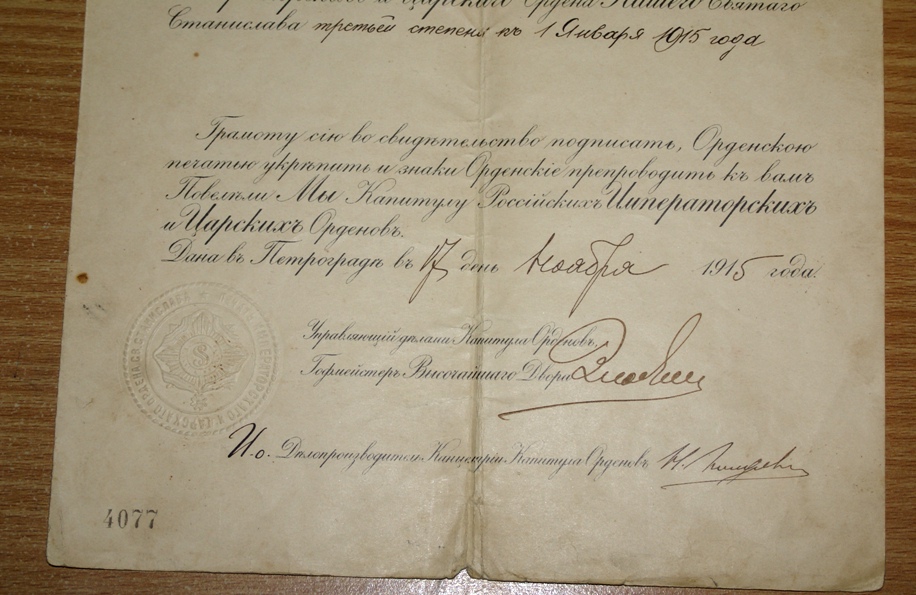 Царскаго Ордена Нашего Святаго
Станислава третьей степени къ 1 Января 1915 года
Грамоту сію во свидѣтельство подписать, Орденскою
печатью укрѣпить и знаки Орденскіе препроводить къ вамъ
Повелѣли Мы Капитулу Россійскихъ Императорскихъ
и Царскихъ Орденовъ.
Дана въ Петроградѣ въ 17 день Ноября 1915 года.
Управляющій дѣлами Капитула Орденовъ,
Гофмейстеръ Высочайшаго Двора
И.о. Дѣлопроизводителя Канцеляріи Капитула Орденовъ
4077